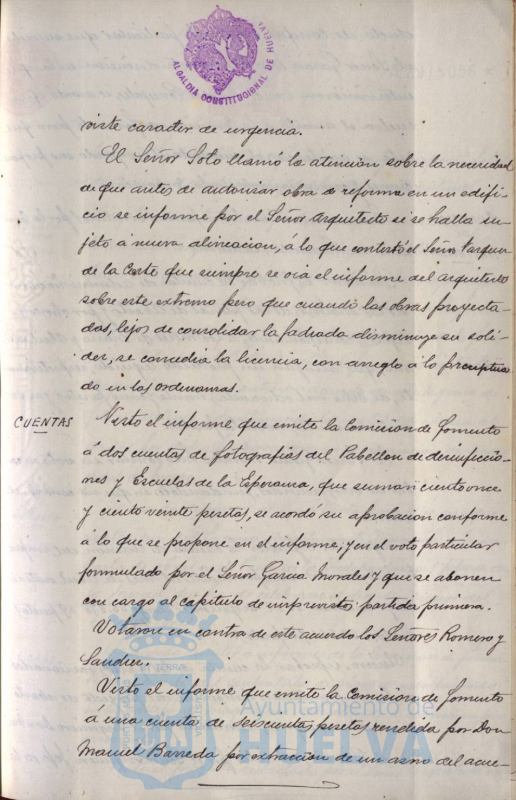 ALCALDIA CONSTITUCIONAL DE HUELVA
viste caracter de urgencia.
El Señor Soto llamó la atencion sobre la necesidad
de que antes de autorizar obra o reforma en un edifi-
cio se informe por el Señor Arquitecto si se halla su-
jeto á nueva alineacion, á lo que contestó el Señor Vazquez
de la Corte que siempre se oia el informe del arquitecto
sobre este extremo pero que cuando las obras proyecta-
das, lejos de consolidar la fachada disminuye su soli-
dez, se concedia la licencia, con arreglo á lo preceptua-
do en las ordenanzas.
CUENTAS
Visto el informe que emite la Comision de Fomento
á dos cuentas de fotografias del Pabellon de desinfeccio-
nes y Escuelas de la Esperanza, que suman ciento once
y ciento veinte pesetas, se acordó su aprobacion conforme
á lo que se propone en el informe, y en el voto particular
formulado por el Señor Garcia Morales y que se abonen
con cargo al capitulo de imprevistos partida primera.
Votaron en contra de este acuerdo los Señores Romero y
Visto el informe que emite la Comision de Fomento
á una cuenta de seiscientas pesetas rendida por Don
Manuel Barreda por extraccion de un asno del acue-
Ayuntamiento de
HUELVA